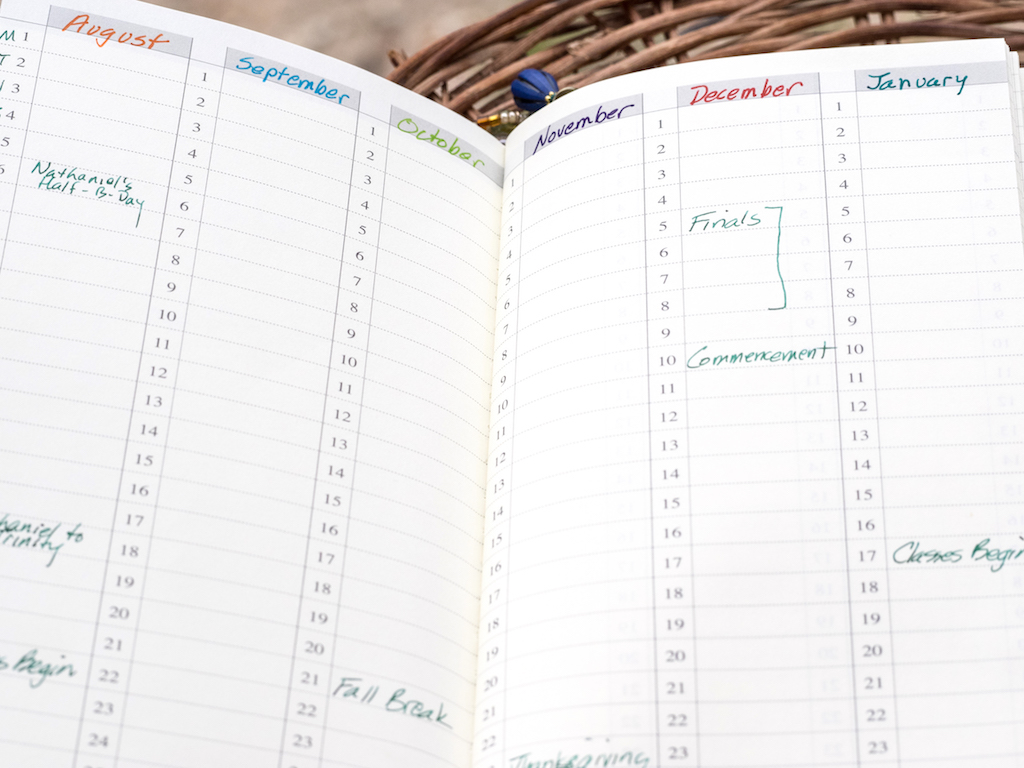 August
M 1
T 2
3
4
5
Nathaniel's
Half-B-Day
haniel to
Trinity
s Begin
September
1
2
3
4
5
6
7
8
9
10
11
12
13
14
15
16
17
18
19
20
21
22
23
24
October
1
2
3
4
5
6
7
8
9
10
11
12
13
14
15
16
17
18
19
20
21 Fall Break
22
23
November
1
2
3
4
5
6
7
8
9
10
11
12
13
14
15
16
17
18
19
20
21
22
Thanksgiving
December
1
2
3
4
5 Finals
6
7
8
9
10 Commencement
11
12
13
14
15
16
17
18
19
20
21
22
23
January
1
2
3
4
5
6
7
8
9
10
11
12
13
14
15
16
17 Classes Begin
18
19
20
21
22
23